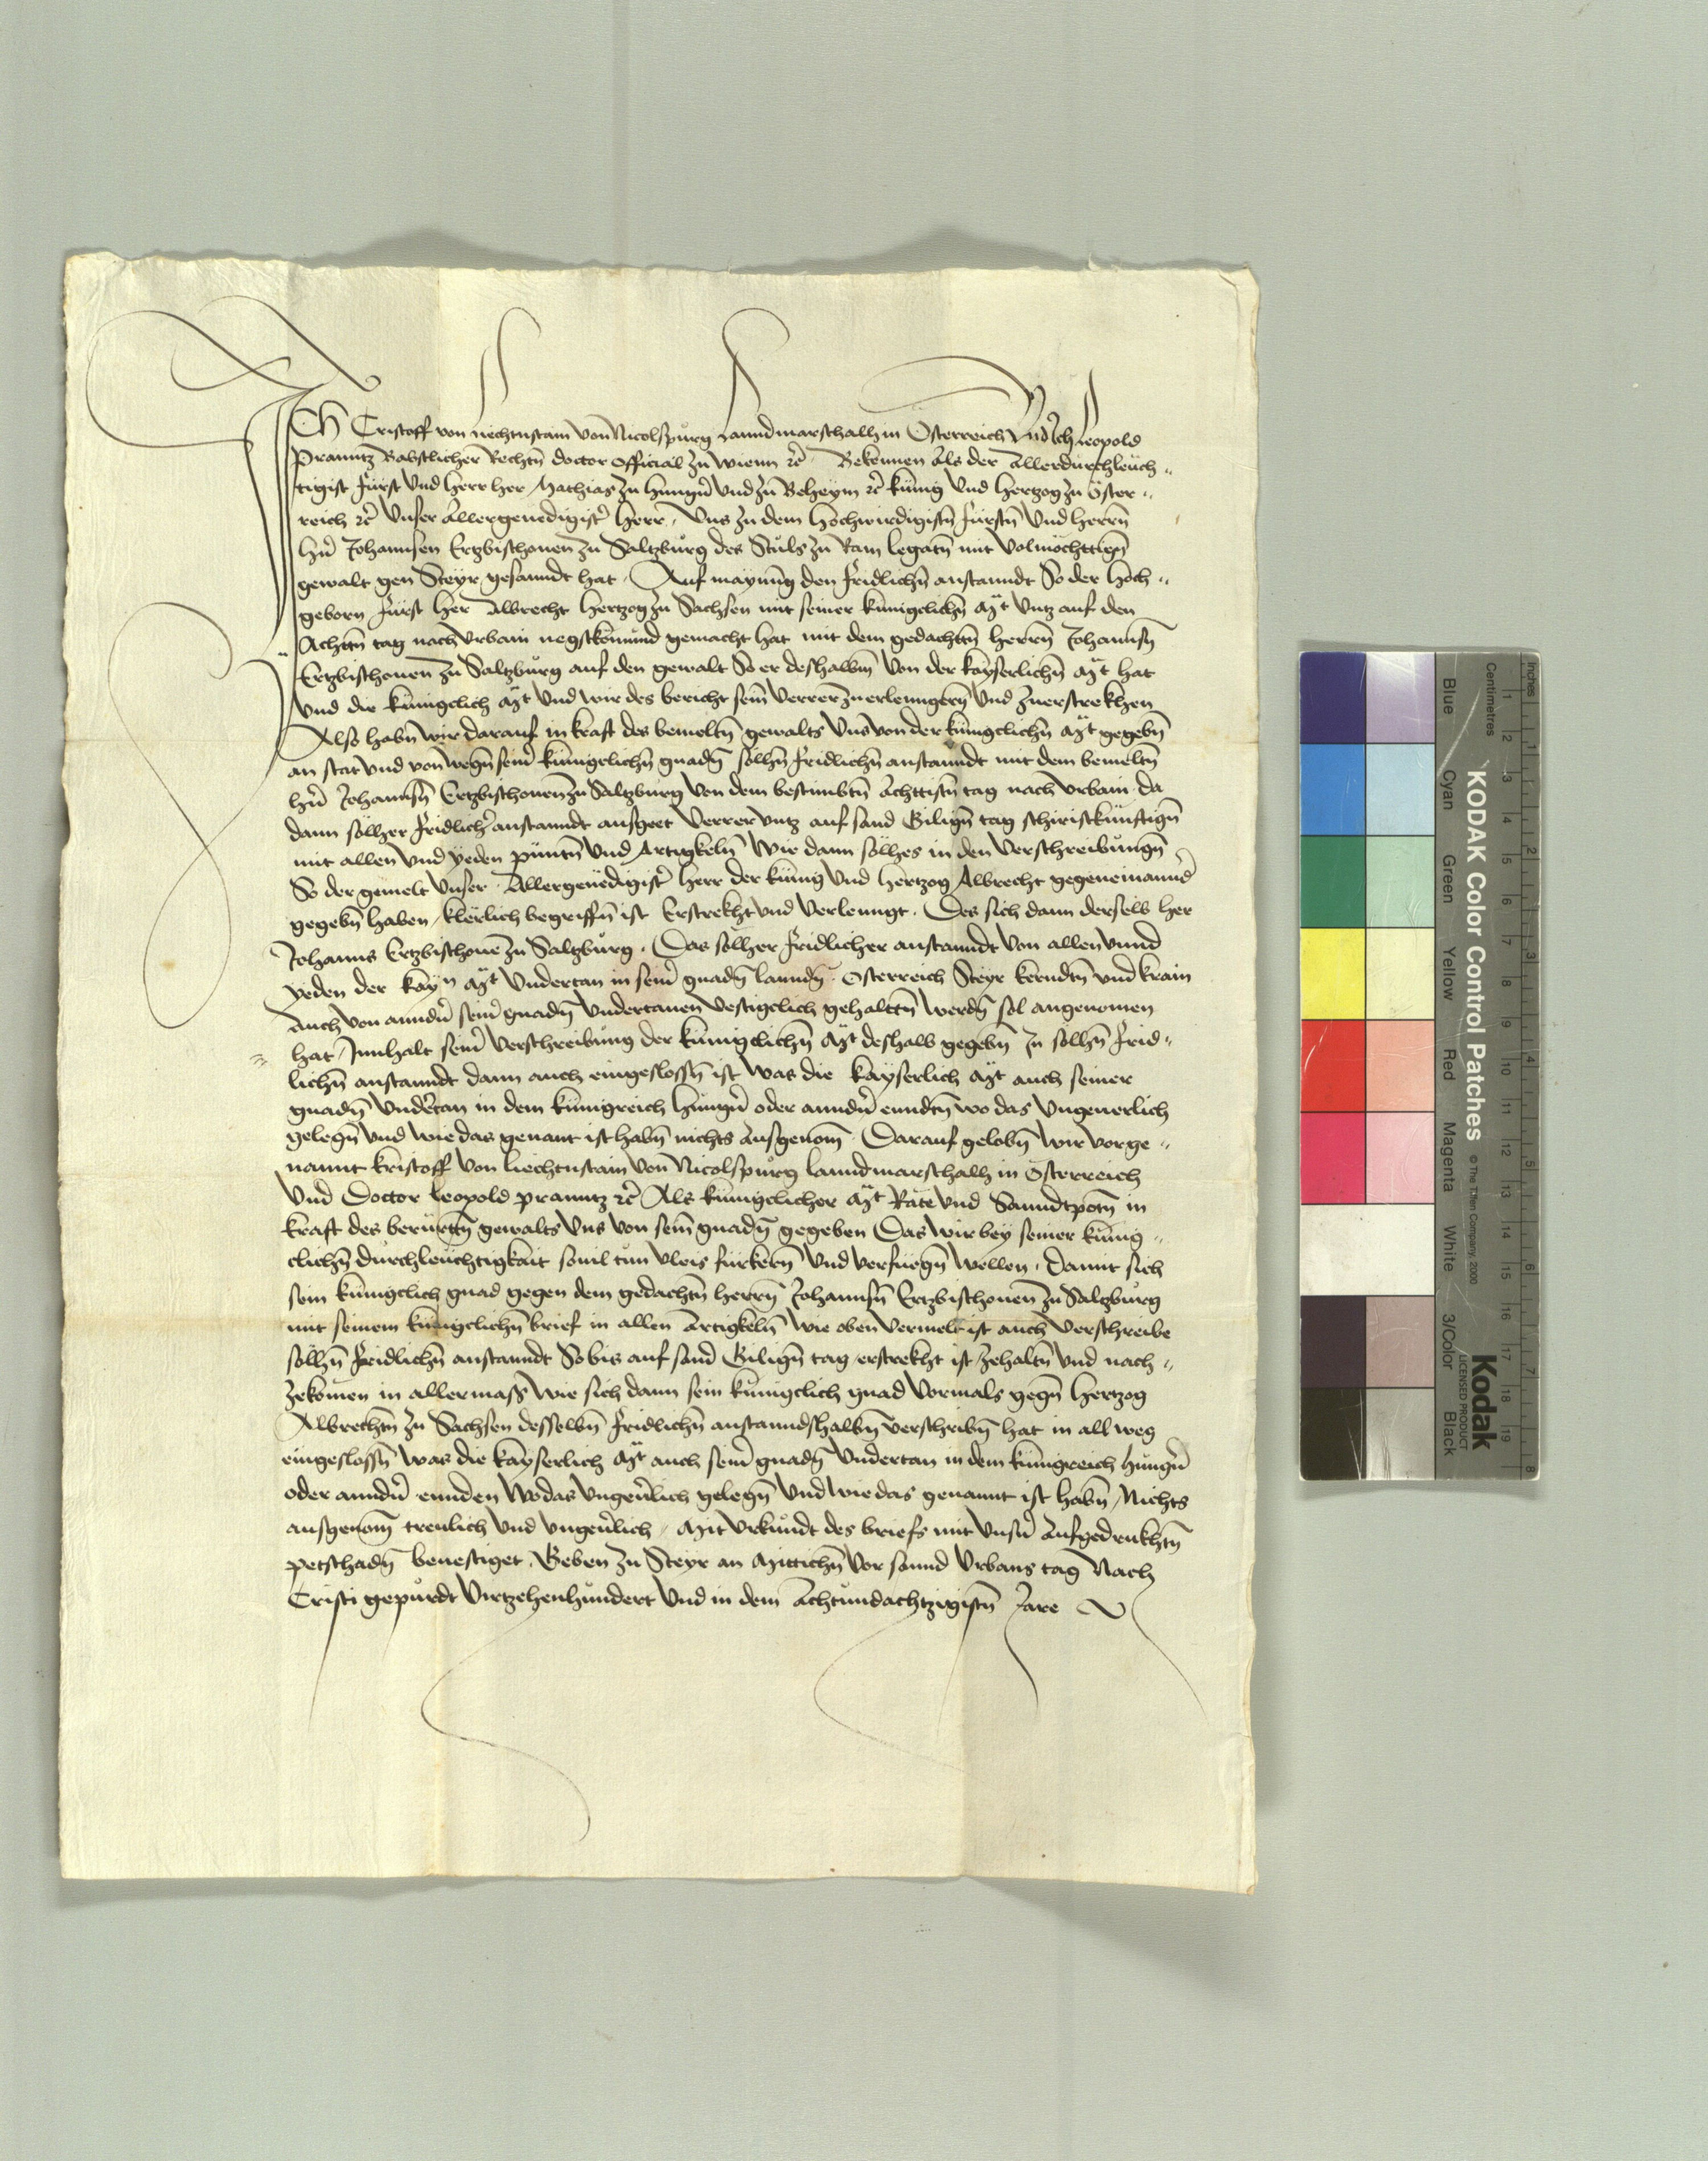 ICH Cristoff von Liechtnstain von Nicolspurg Lanndmarschalh in Österreich Und Ich Leopold
Pranntz Babstlicher Rechtn̄ doctor official zu Wienn ꝛc̄ Bekennen Als der Allerdurchleuch„
tigist fürst Und herr her Mathias zu hungn̄ Und zu Beheym ꝛc̄ kunig Und hertzog zu Öster„
reich ꝛc̄ Unser Allergenedigister herr, Uns zu dem hochwirdigistn̄ fürstn̄ Und herrn̄
hn̄ Johannsen Ertzbischouen zu Saltzburg des Stuls zu Rom legatn̄ mit volmöchttign̄
gewalt gen Steyr gesanndt hat, Auf maynu̅g den fridlichn̄ anstanndt So der hoch„
geborn fürst her Albrecht hertzog zu Sachsen mit seiner kunigclichn̄ Mt untz auf den
Achttn̄ tag nach Urbani negstkomund gemacht hat mit dem gedachttn̄ herrn̄ Johannsn̄
Ertzbischouen zu Saltzburg auf den gewalt So er deshalbm̄ von der kayserlichn̄ Mt hat
Und die kunigclich Mt Und wir des bericht sein̄ verrer zuerlenngern̄ Und zuerstrekhen
Also habn̄ wir darauf in kraft des bemeltn̄ gewalts Uns von der kunigclichn̄ Mt gegebn̄
an stat Und von wegn̄ seiner kunigclichn̄ gnadn̄ solhn̄ fridlichn̄ anstanndt mit dem bemeltn̄
hn̄ Johannsn̄ Ertzbischouen zu Saltzburg von dem bestimbtn̄ Achttistn̄ tag nach Urbani da
dann sölher fridlicher anstanndt ausgeet Verrer untz auf sand Gilign̄ tag schiristkünftign̄
mit allen Und yeden püntn̄ Und Artigkeln̄ Wie dann sölhes in den Verschreibungn̄
So der gemelt Unser Allergenedigister herr der kunig Und hertzog Albrecht gegeneinannder
gegebn̄ haben, klerlich begriffn̄ ist Erstrekht Und Verlenngt. Des sich dann derselb her
Johanns Ertzbischoue zu Saltzburg. Das solher fridlicher anstanndt Von allen Unnd
yeden der kayn Mt Undertan in seiner gnadn̄ lanndn̄ Osterreich Steyr kerndtn̄ Und krain
Auch von anndern seiner gnadn̄ Undertanen Vestigclich gehalttn̄ werdn̄ sol angenomen
hat, Innhalt seiner Verschreibung der kunigclichn̄ Mt deshalb gegebn̄ In solhn̄ frid„
lichn̄ anstanndt dann auch eingeslossn̄ ist Was die kayserlich Mt auch seiner
gnadn̄ Undertan in dem kunigreich hungn̄ oder anndern enndtn̄ wo das Ungeuerlich
gelegn̄ Und wie das genant ist habn̄ nichts Ausgenom̄. Darauf gelobn̄ wir vorge„
nannt kristoff von Liechtnstain von Nicolspurg lanndmarschalh in Österreich
Und Doctor Leopold pranntz ꝛc̄ Als kunigclicher Mt Räte Und Sanndtpotn̄ in
kraft des berürttn̄ gewalts Uns von sein̄ gnadn̄ gegeben Das Wir bey seiner kunig„
clichn̄ durchleuchtigkait souil tun Vleis fürkern̄ Und verfuegn̄ wellen. Damit sich
sein kunigclich gnad gegen dem gedachtn̄ herrn̄ Johannsn̄ Ertzbischouen zu Saltzburg
mit seinem kunigclichn̄ brief in allen Artigkeln̄ wie oben Vermelt ist auch Verschreibe
solhn̄ fridlichn̄ anstanndt So bis auf sand Gilign̄ tag erstrekht ist zehaltn̄ Und nach„
zekomen in allermass wie sich dann sein kunigclich gnad Vormals gegn̄ hertzog
Albrechtn̄ zu Sachsen desselbn̄ fridlichn̄ anstanndshalbn̄ Verschribn̄ hat in all weg
eingeslossn̄ Was die kayserlich Mt auch seiner gnadn̄ Undertan in dem kunigreich hungn̄
oder anndern ennden wo das Ungeuerlich gelegn̄ Und wie das genannt ist habn̄, Nichts
ausgenom̄ treulich Und Ungeuerlich, Mit Urkundt des briefs mit Unsern Aufgedrukhtn̄
petschadn̄ beuestiget. Geben zu Steyr an Mittichn̄ Vor sannd Urbans tag Nach
Cristi gepurdt Virtzehenhundert Und in dem Achtundachtzigistn̄ Jare
Inches
Centimetres
1 2 3 4 5 6 7 8
1 2 3 4 5 6 7 8 9 10 11 12 13 14 15 16 17 18 19
KODAK Color Control Patches
© The Tiffen Company, 2000
Kodak
LICENSED PRODUCT
Blue
Cyan
Green
Yellow
Red
Magenta
White
3/Color
Black